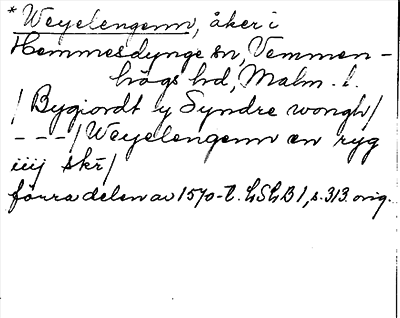 *Weyelengenn, åker i
Hemmesdynge sn, Vemmen-
högs hd, Malm. l.
/ Bygiordt y Syndre wongh/
- - - / Weyelengenn en ryg
iiij skr/
förra delen av 1570-t. LSLB 1, s. 313. orig.